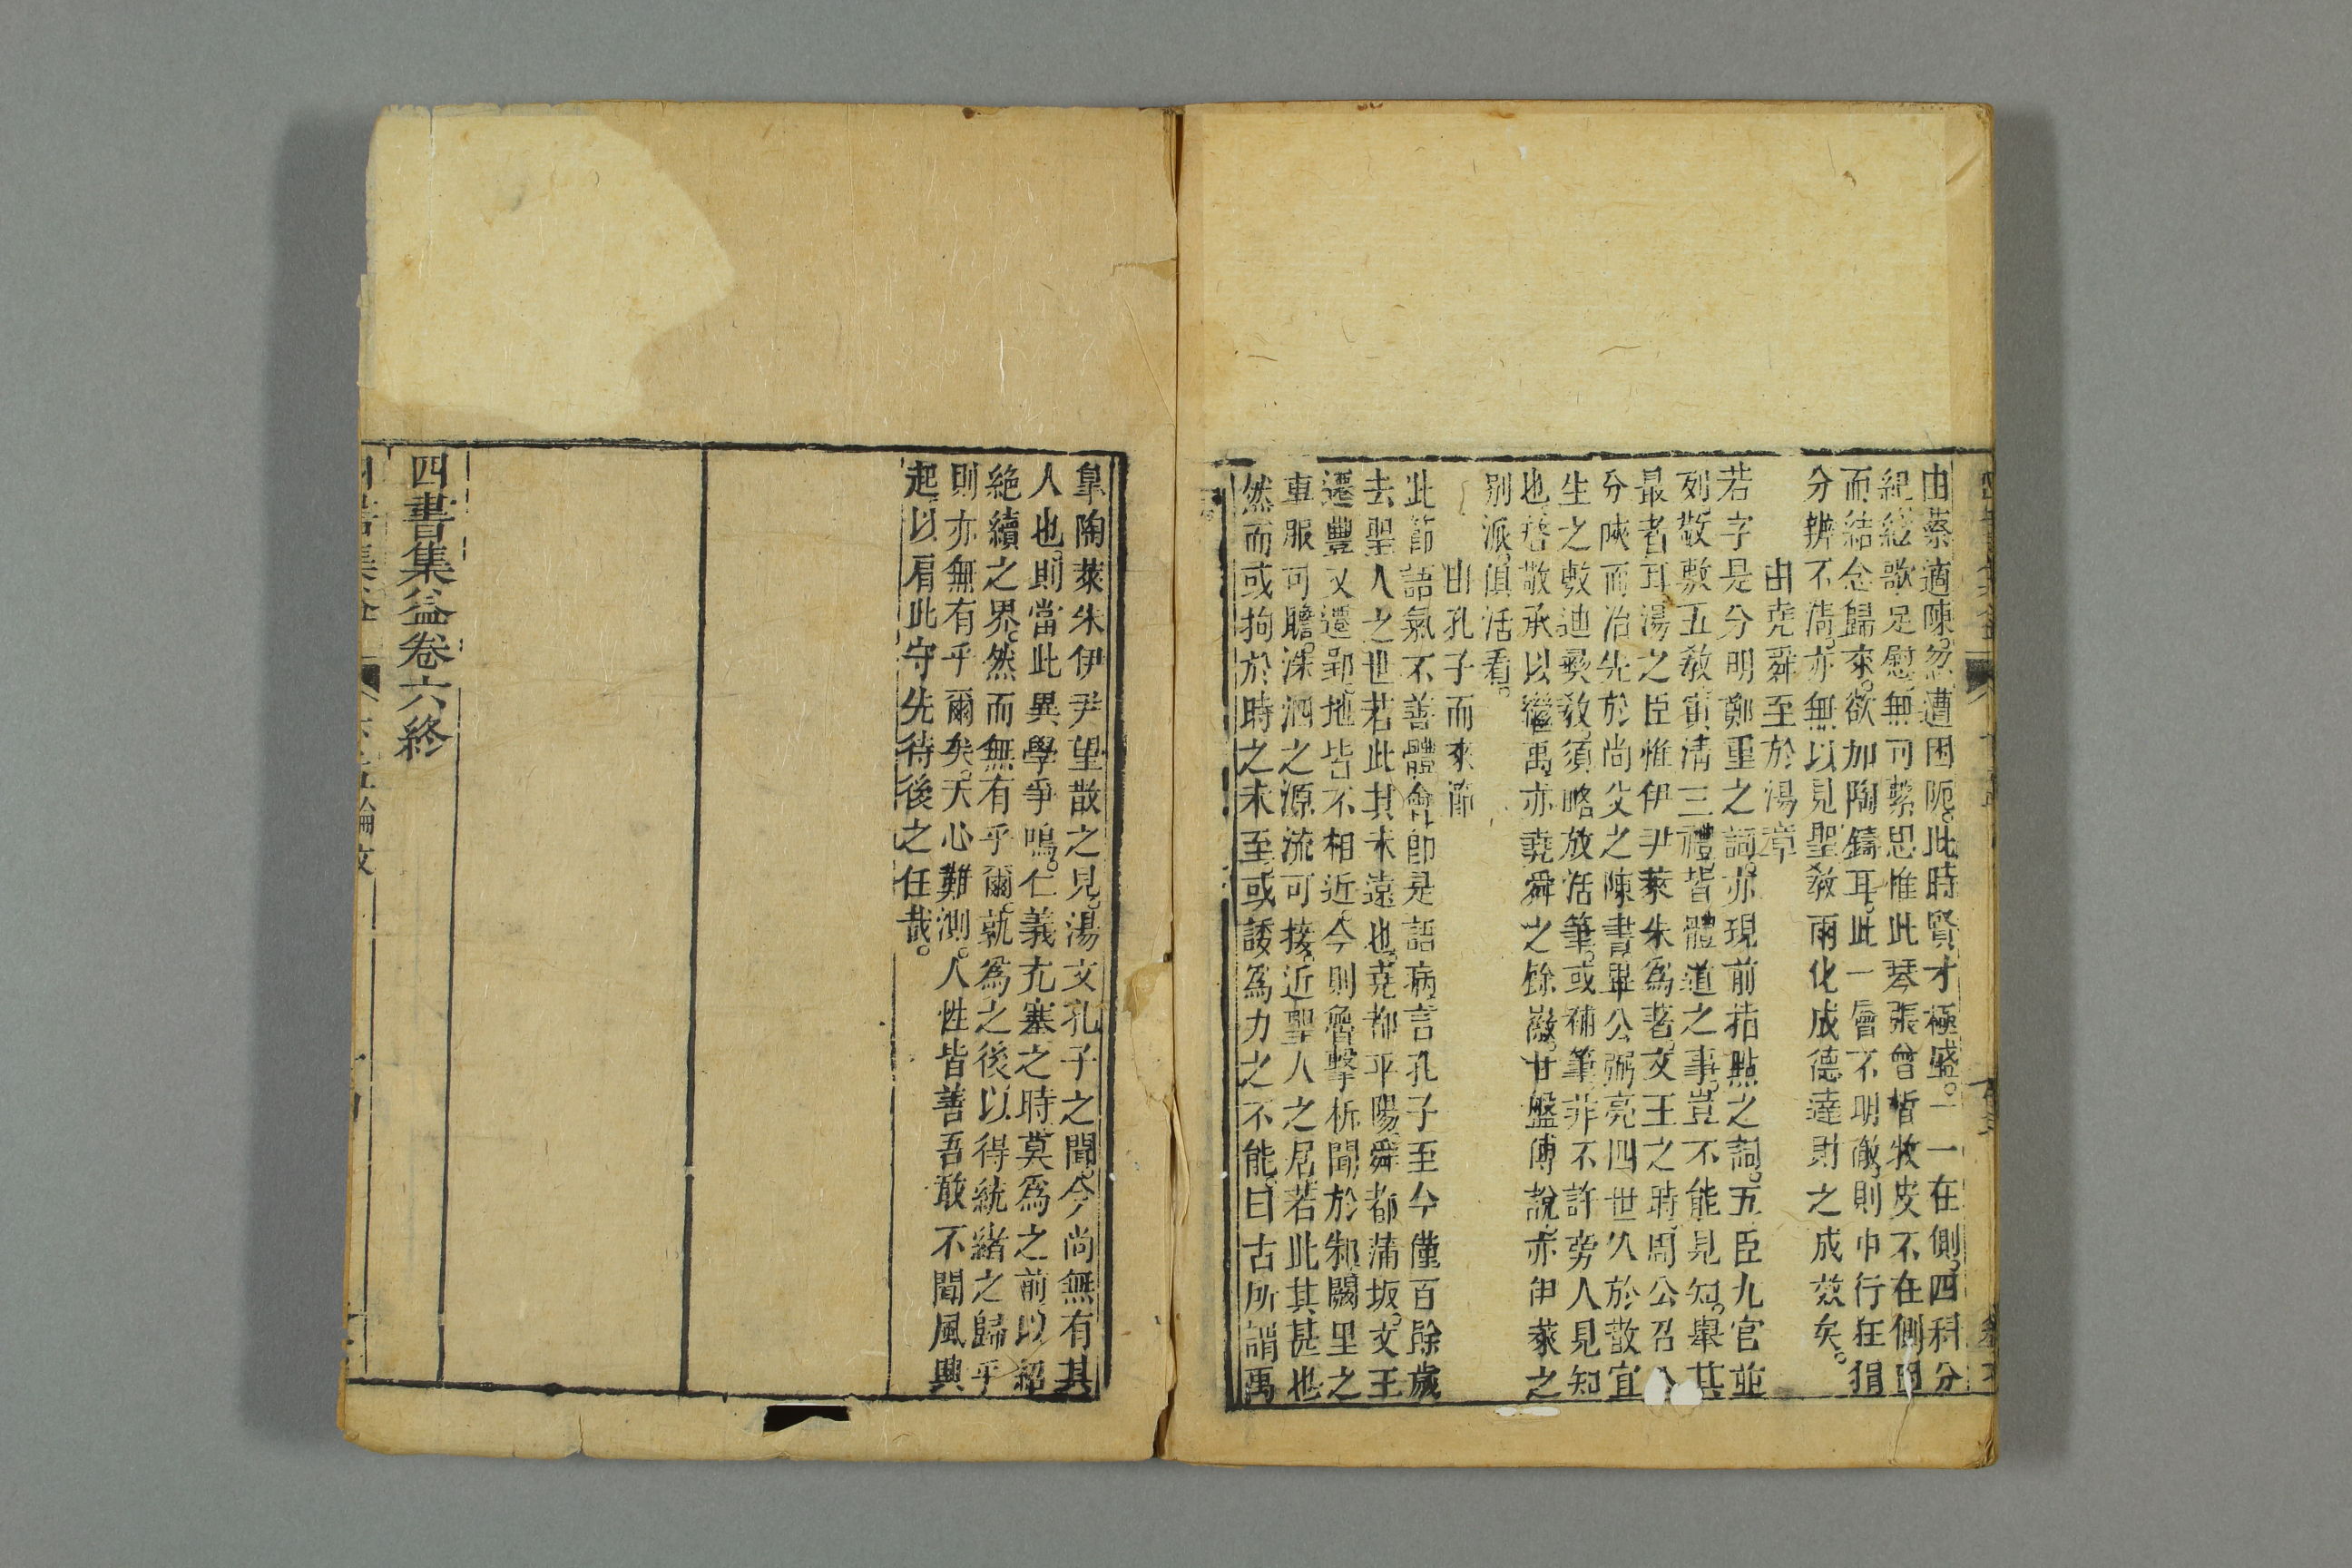 由蔡適陳。忽遭困阨。此時賢才極盛。一一在側。四科分
紀絃歌足慰。無可繫思惟此琴張曾晳牧皮不在側因
而結念歸來。欲加陶鑄耳。此一層不明徹。則中行狂狷
分辨不淸。亦無以見聖教雨化成德達財之成效矣。
由堯舜至於湯章
若字是分明鄭重之詞。亦現前指點之詞。五臣九官並
列。敬敷五敎。寅淸三禮。皆體道之事。豈不能見知。舉其
最者耳。湯之臣惟伊尹萊朱爲著。文王之時。周公召公
分陝而治。先於尚父之陳書。畢公弼亮四世。久於散宜
生之敷迪彝敎。須略放活筆。或補筆。非不許旁人見知
也。啓敬承以繼禹。亦堯舜之餘緒。甘盤傅說。亦伊萊之
別派。俱活看。
由孔子而來節
此節語氣不善體會。即是語病。言孔子至今僅百餘歲
去聖人之世若此其未遠也。堯都平陽。舜都蒲坂。文王
遷豐。又遷郢。地皆不相近。今則魯擊柝聞於邾。闕里之
車服可瞻。洙泗之源流可接。近聖人之居若此其甚也
然而或拘於時之未至。或諉爲力之不能。曰古所謂禹
皐陶萊朱伊尹望散之見。湯文孔子之聞。今尚無有其
人也。則當此異學爭鳴。仁義充塞之時。莫爲之前以紹
絕續之界。然而無有乎爾。孰爲之後以得統緒之歸乎
則亦無有乎爾矣。天心難測。人性皆善。吾敢不聞風興
起。以肩此守先待後之任哉。
四書集益卷六終